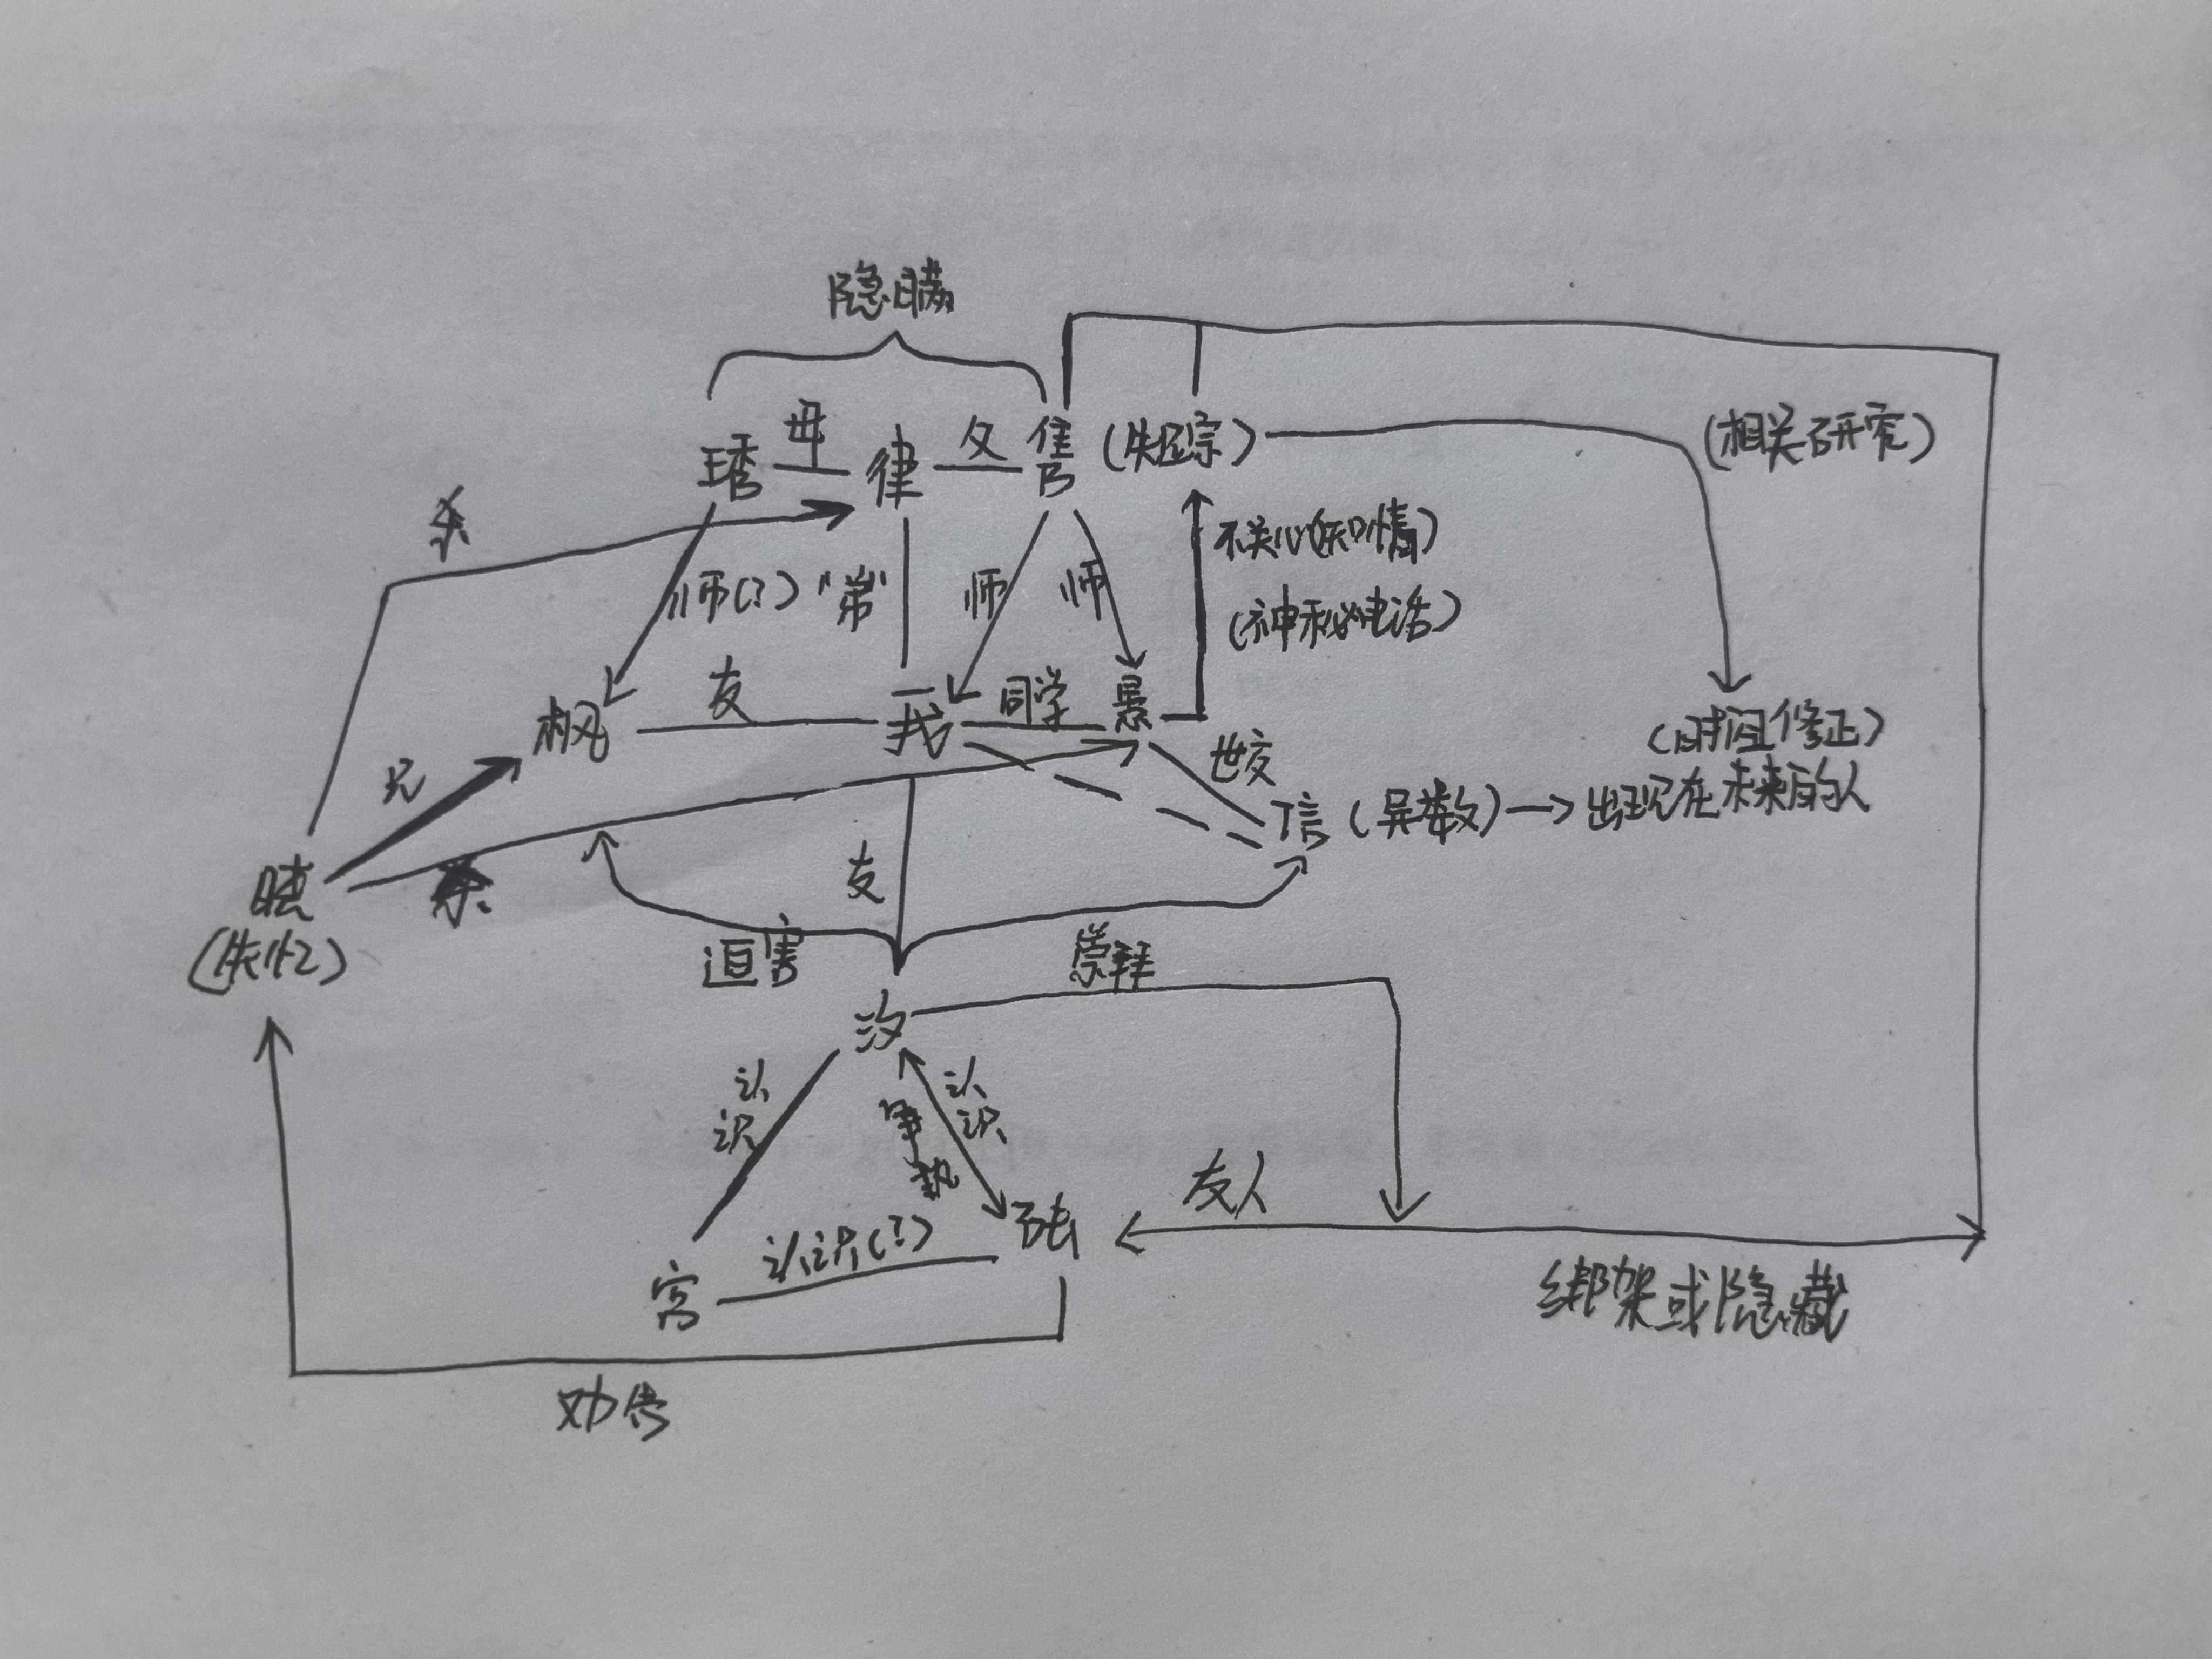 隐瞒
琇 母 律 父 隽 (失踪)
(相关研究)
杀
不关心(知情)
(神秘电话)
师(?) "弟" 师 师
枫 友 我 同学 暴
兄
世交
(时间修正)
信 (异数) → 出现在未来的人
杀
友
(失忆)
迫害 崇拜
汐
认识 争执 认识
宫 认识(?) 砘
友人
绑架或隐藏